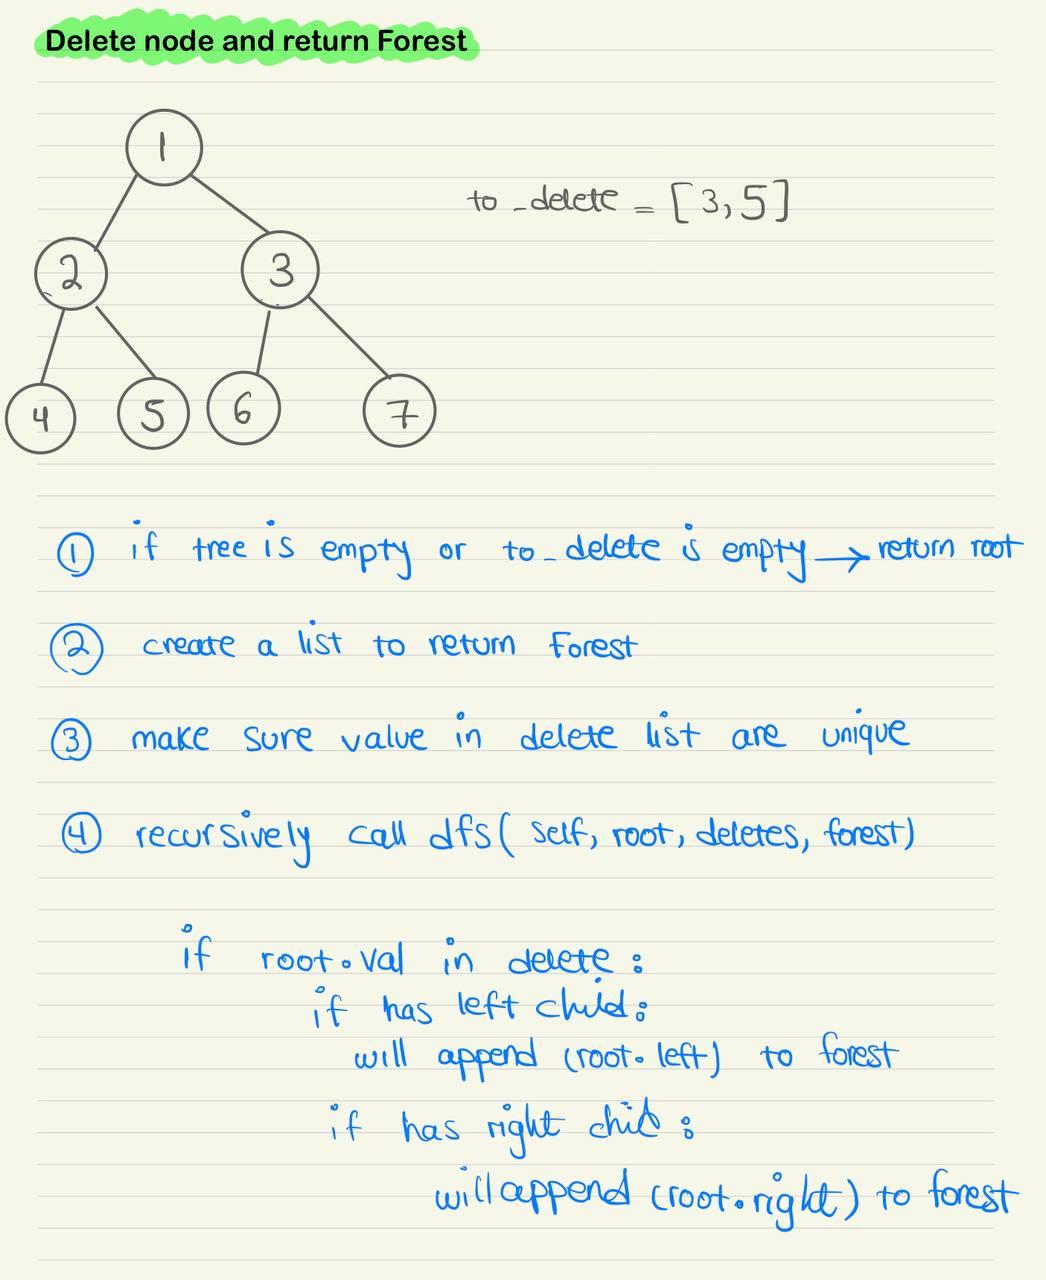 Delete node and return Forest
1
to_delete = [3,5]
2 3
4 5 6 7
① if tree is empty or to_delete is empty → return root
② create a list to return Forest
③ make sure value in delete list are unique
④ recursively call dfs( self, root, deletes, forest)
if root.val in delete :
if has left child:
will append (root.left) to forest
if has right chid :
will append (root.right) to forest